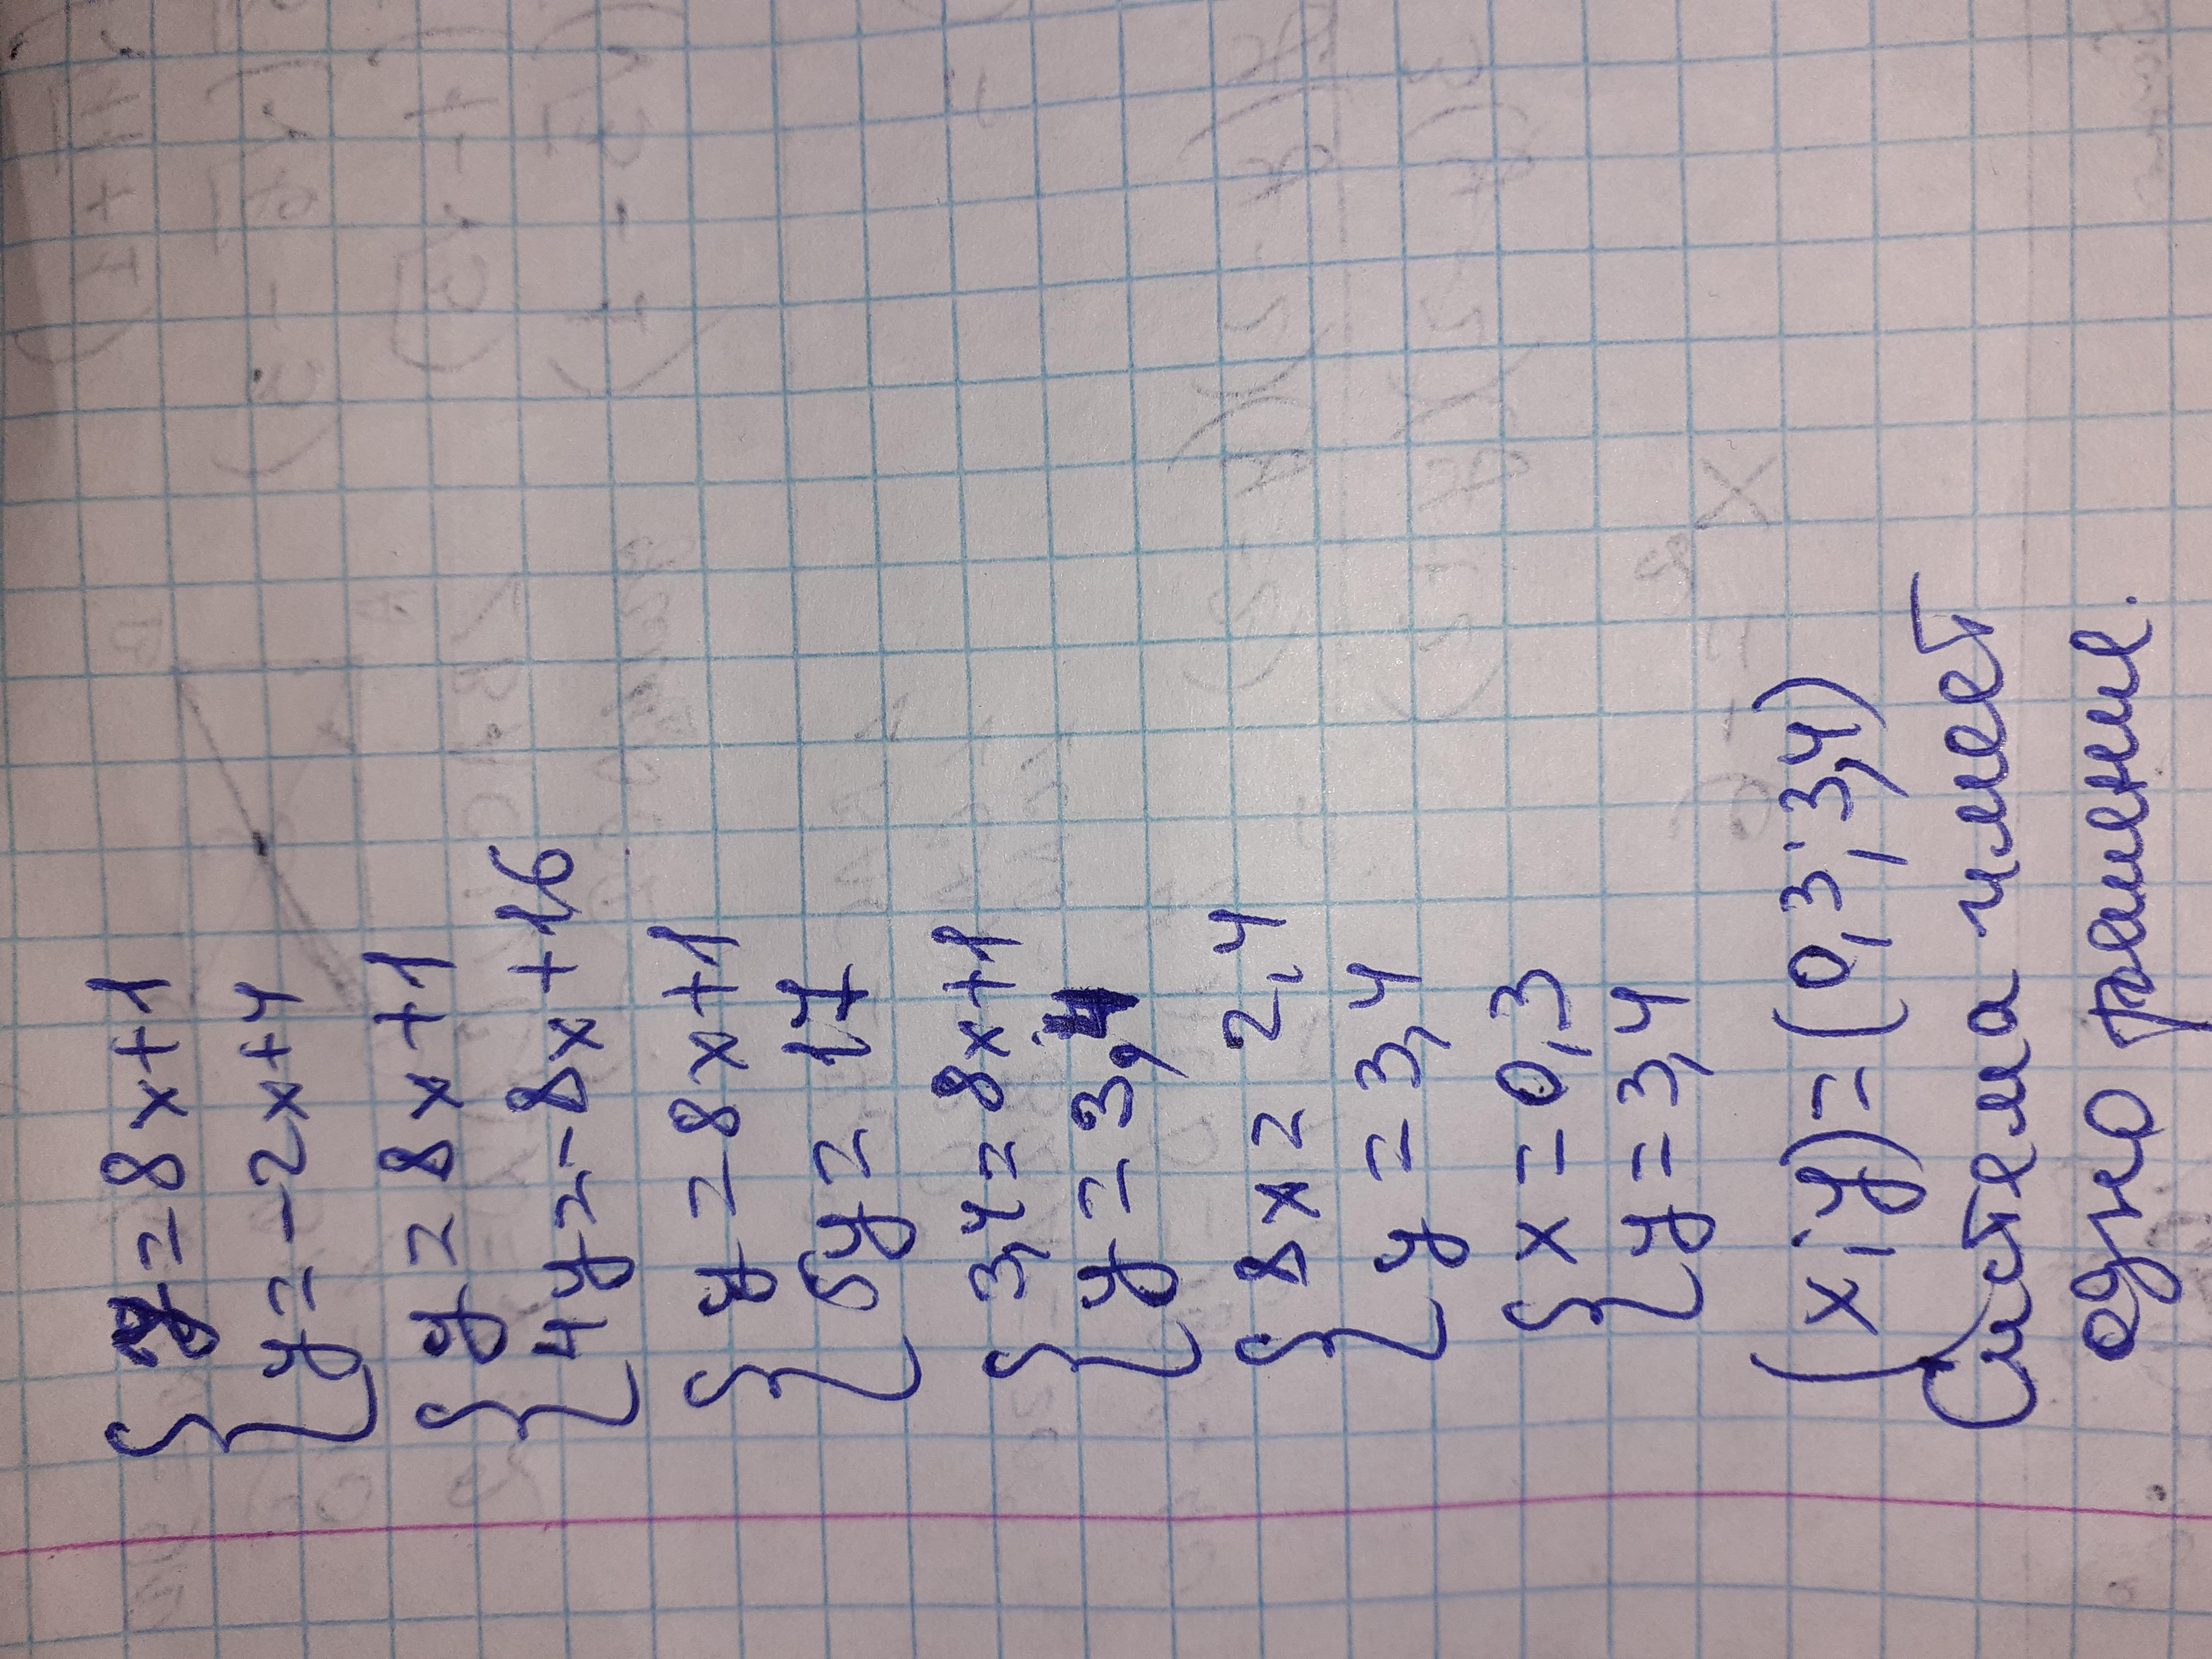 y = 8x+1
y = -2x+4
y = 8x+1
4y = -8x+16
y = 8x+1
5y = 17
3,4 = 8x+1
y = 3,4
8x = 2,4
y = 3,4
x = 0,3
y = 3,4
(x;y) = (0,3; 3,4)
Система имеет
одно решение.